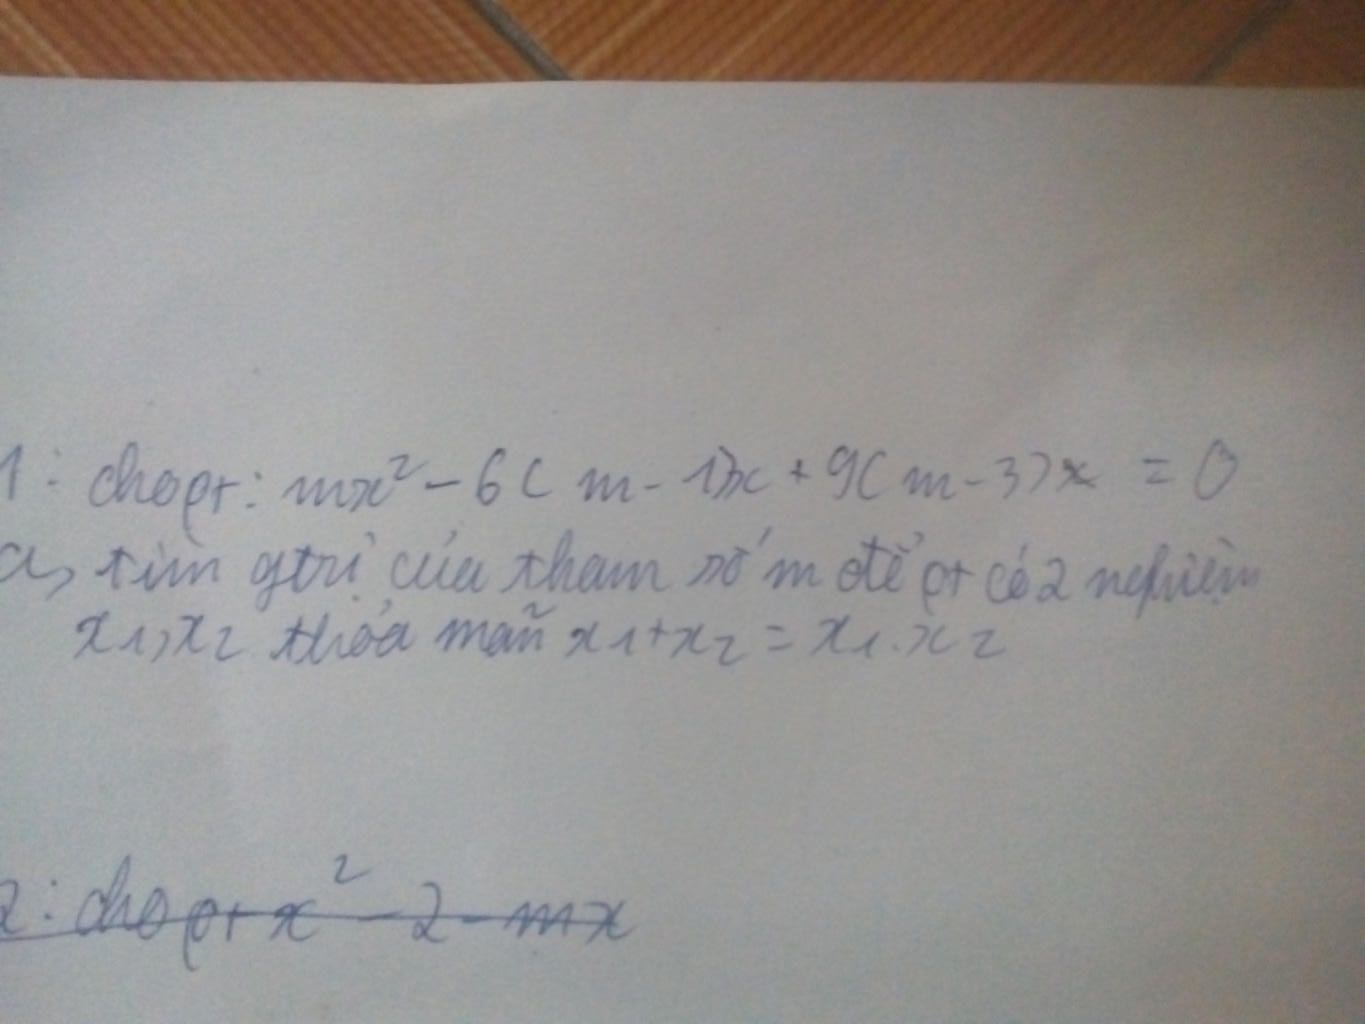 1: cho pt: mx² - 6(m-1)x + 9(m-3)x = 0
a, tìm gtrị của tham số m để pt có 2 nghiệm
x1, x2 thỏa mãn x1+x2 = x1.x2
2: cho pt x² - 2 - mx